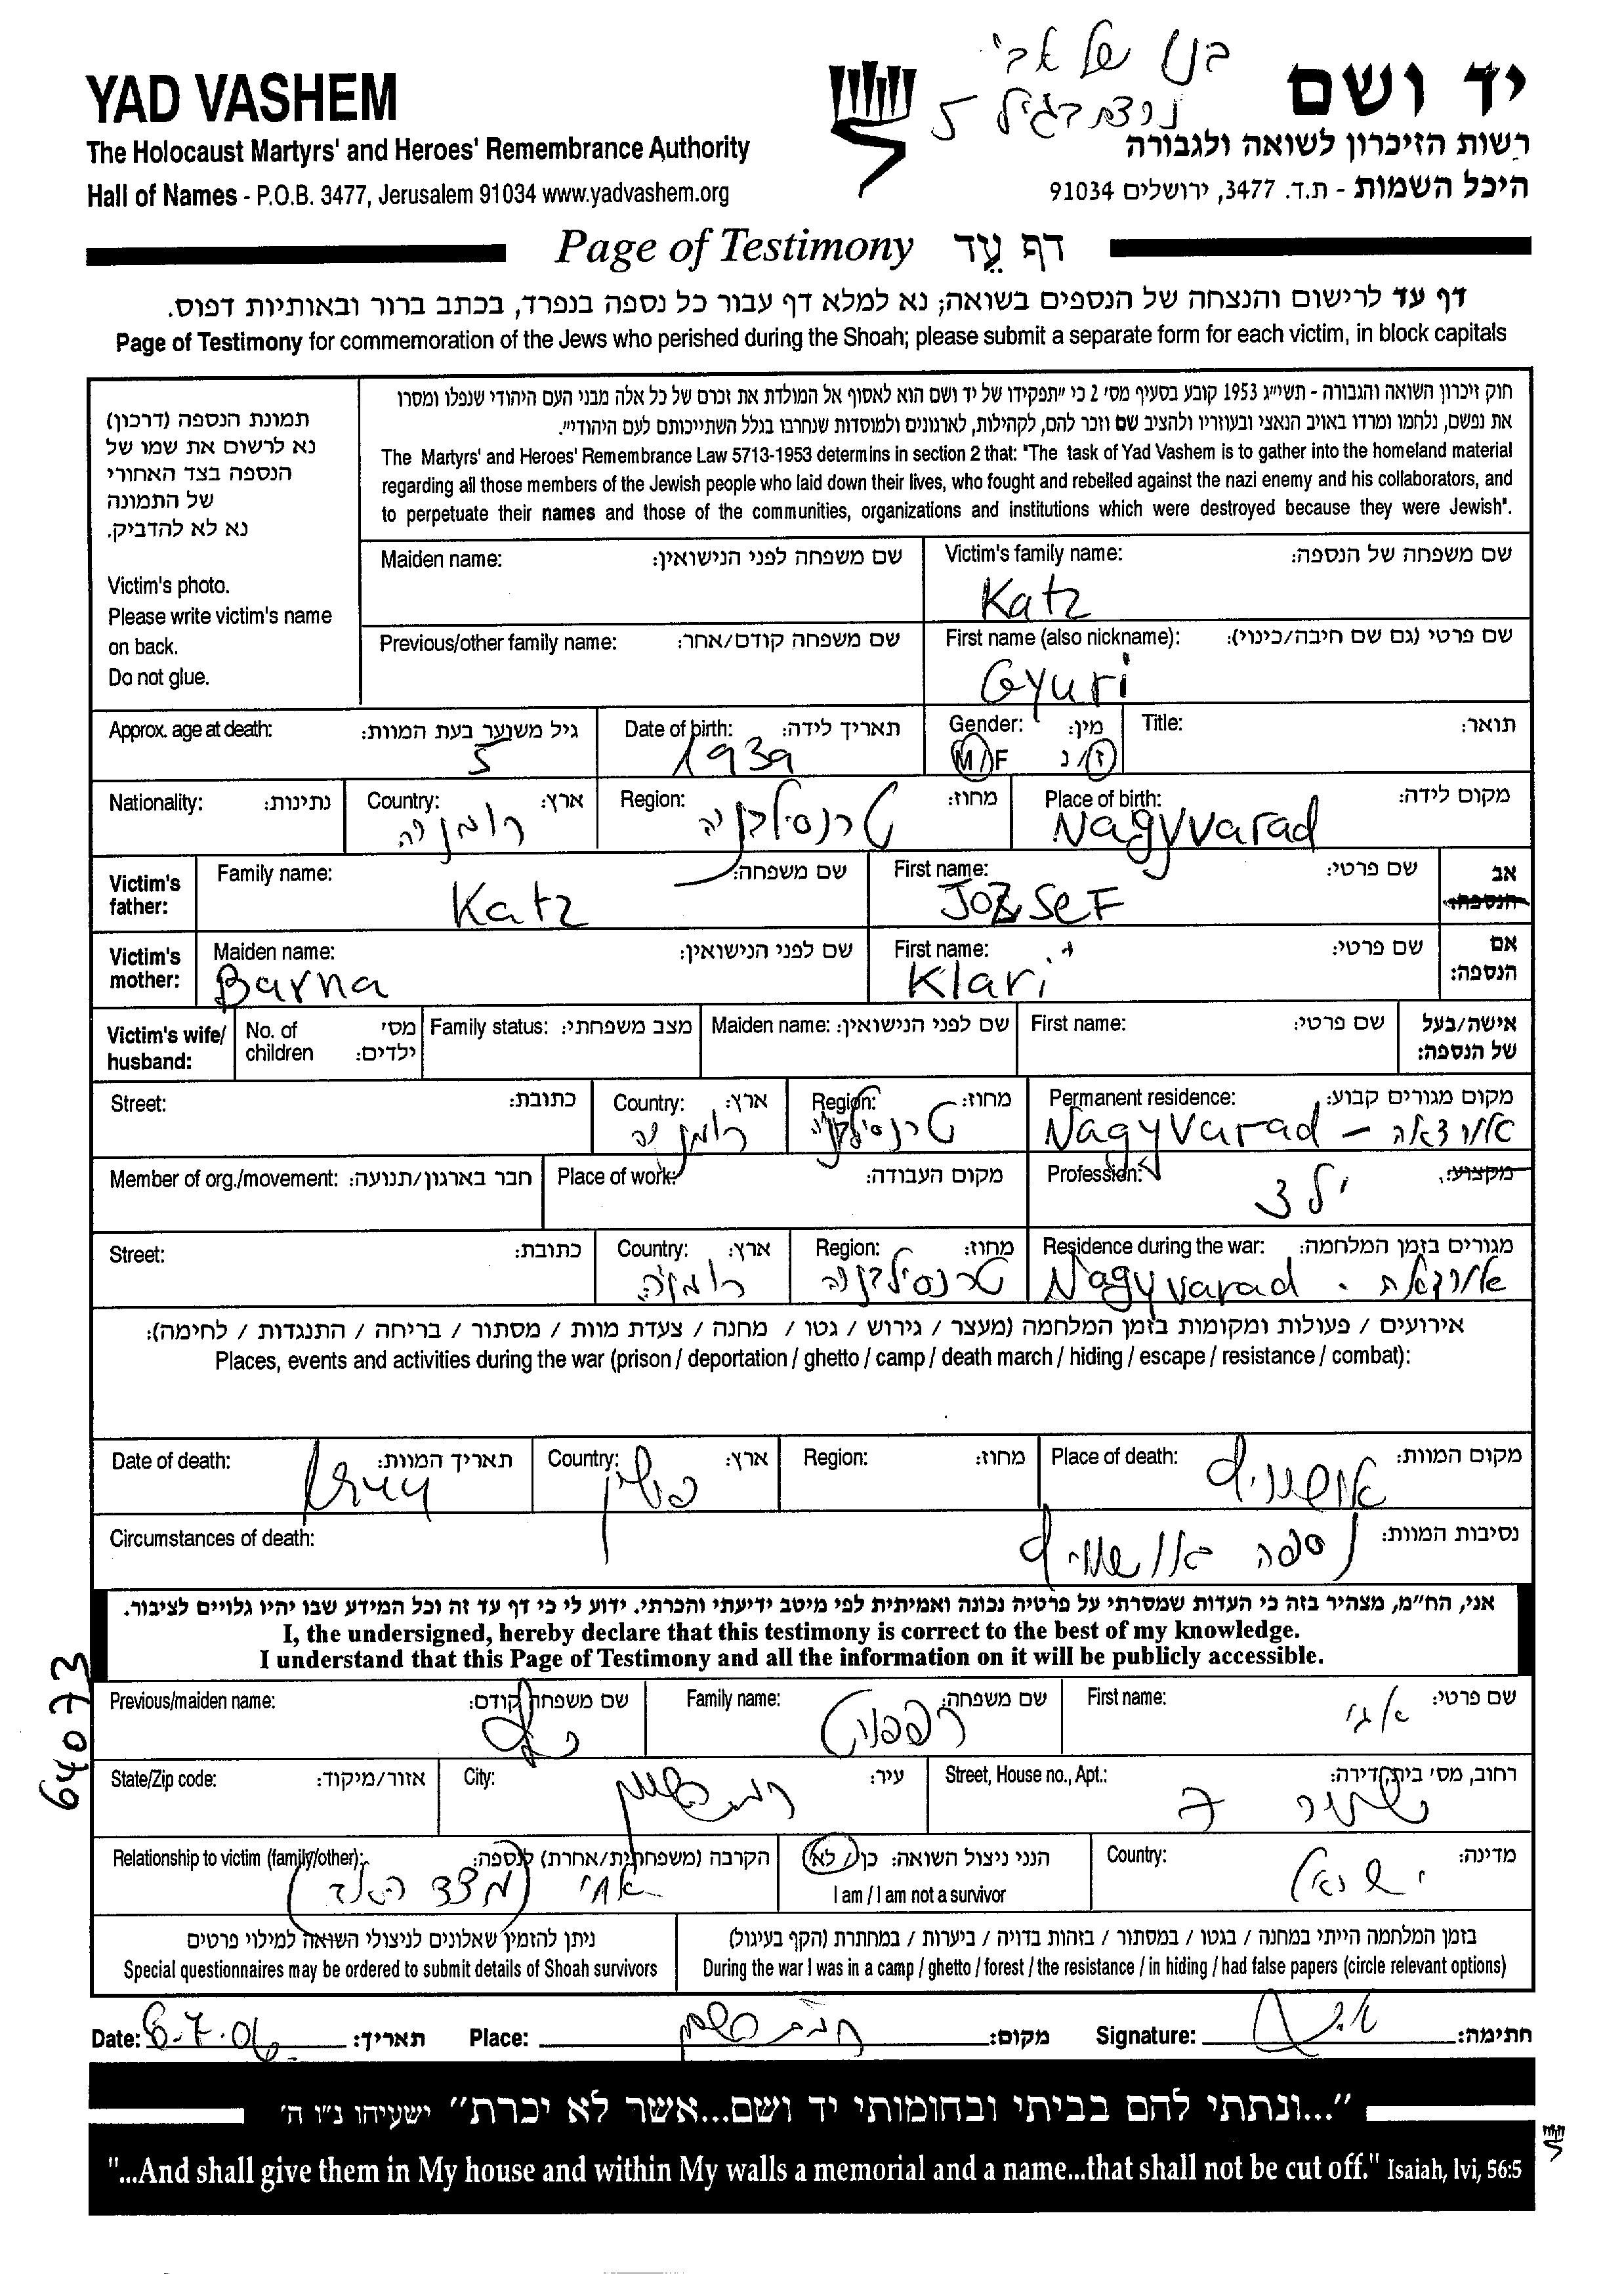 בנו של אבי
נרצח בגיל 5
YAD VASHEM
יד ושם
The Holocaust Martyrs' and Heroes' Remembrance Authority
רשות הזיכרון לשואה ולגבורה
Hall of Names - P.O.B. 3477, Jerusalem 91034 www.yadvashem.org
היכל השמות - ת.ד. 3477, ירושלים 91034
Page of Testimony דף עֵד
דף עד לרישום והנצחה של הנספים בשואה; נא למלא דף עבור כל נספה בנפרד, בכתב ברור ובאותיות דפוס.
Page of Testimony for commemoration of the Jews who perished during the Shoah; please submit a separate form for each victim, in block capitals
תמונת הנספה (דרכון)
נא לרשום את שמו של
הנספה בצד האחורי
של התמונה
נא לא להדביק.
Victim's photo.
Please write victim's name
on back.
Do not glue.
חוק זיכרון השואה והגבורה - תשי"ג 1953 קובע בסעיף מס' 2 כי "תפקידו של יד ושם הוא לאסוף אל המולדת את זכרם של כל אלה מבני העם היהודי שנפלו ומסרו
את נפשם, נלחמו ומרדו באויב הנאצי ובעוזריו ולהציב שם וזכר להם, לקהילות, לארגונים ולמוסדות שנחרבו בגלל השתייכותם לעם היהודי".
The Martyrs' and Heroes' Remembrance Law 5713-1953 determins in section 2 that: "The task of Yad Vashem is to gather into the homeland material
regarding all those members of the Jewish people who laid down their lives, who fought and rebelled against the nazi enemy and his collaborators, and
to perpetuate their names and those of the communities, organizations and institutions which were destroyed because they were Jewish".
Maiden name: שם משפחה לפני הנישואין:
Victim's family name: שם משפחה של הנספה:
Katz
Previous/other family name: שם משפחה קודם/אחר:
First name (also nickname): שם פרטי (גם שם חיבה/כינוי):
Gyuri
Approx. age at death: גיל משוער בעת המוות:
5
Date of birth: תאריך לידה:
1939
Gender: מין:
M/F ז/נ
Title: תואר:
Nationality: נתינות:
Country: ארץ:
רומניה
Region: מחוז:
טרנסילבניה
Place of birth: מקום לידה:
Nagyvarad
Victim's father:
Family name: שם משפחה:
Katz
First name: שם פרטי:
JOZSEF
אב
הנספה:
Victim's mother:
Maiden name: שם לפני הנישואין:
Barna
First name: שם פרטי:
Klari
אם
הנספה:
Victim's wife/ husband:
No. of children מס' ילדים:
Family status: מצב משפחתי:
Maiden name: שם לפני הנישואין:
First name: שם פרטי:
אישה/בעל
של הנספה:
Street: כתובת:
Country: ארץ:
רומניה
Region: מחוז:
טרנסילבניה
Permanent residence: מקום מגורים קבוע:
Nagyvarad – אורדאה
Member of org./movement: חבר בארגון/תנועה:
Place of work: מקום העבודה:
Profession: מקצוע:
ילד
Street: כתובת:
Country: ארץ:
רומניה
Region: מחוז:
טרנסילבניה
Residence during the war: מגורים בזמן המלחמה:
Nagyvarad . אורדאה
אירועים / פעולות ומקומות בזמן המלחמה (מעצר / גירוש / גטו / מחנה / צעדת מוות / מסתור / בריחה / התנגדות / לחימה):
Places, events and activities during the war (prison / deportation / ghetto / camp / death march / hiding / escape / resistance / combat):
Date of death: תאריך המוות:
Country: ארץ:
פולין
Region: מחוז:
Place of death: מקום המוות:
אושוויץ
Circumstances of death: נסיבות המוות:
נספה באושוויץ
אני, הח"מ, מצהיר בזה כי העדות שמסרתי על פרטיה נכונה ואמיתית לפי מיטב ידיעתי והכרתי. ידוע לי כי דף עד זה וכל המידע שבו יהיו גלויים לציבור.
I, the undersigned, hereby declare that this testimony is correct to the best of my knowledge.
I understand that this Page of Testimony and all the information on it will be publicly accessible.
64073
Previous/maiden name: שם משפחה קודם:
כץ
Family name: שם משפחה:
First name: שם פרטי:
אגי
State/Zip code: אזור/מיקוד:
City: עיר:
Street, House no., Apt.: רחוב, מס' בית, דירה:
7
Relationship to victim (family/other): הקרבה (משפחתית/אחרת) לנספה:
אחי (מצד האב)
הנני ניצול השואה: כן / לא
I am / I am not a survivor
Country: מדינה:
ישראל
ניתן להזמין שאלונים לניצולי השואה למילוי פרטים
Special questionnaires may be ordered to submit details of Shoah survivors
בזמן המלחמה הייתי במחנה / בגטו / במסתור / בזהות בדויה / ביערות / במחתרת (הקף בעיגול)
During the war I was in a camp / ghetto / forest / the resistance / in hiding / had false papers (circle relevant options)
Date: 6.7.06 תאריך:
Place: מקום:
Signature: חתימה:
"...ונתתי להם בביתי ובחומותי יד ושם...אשר לא יכרת" ישעיהו נ"ו ה'
"...And shall give them in My house and within My walls a memorial and a name...that shall not be cut off." Isaiah, lvi, 56:5